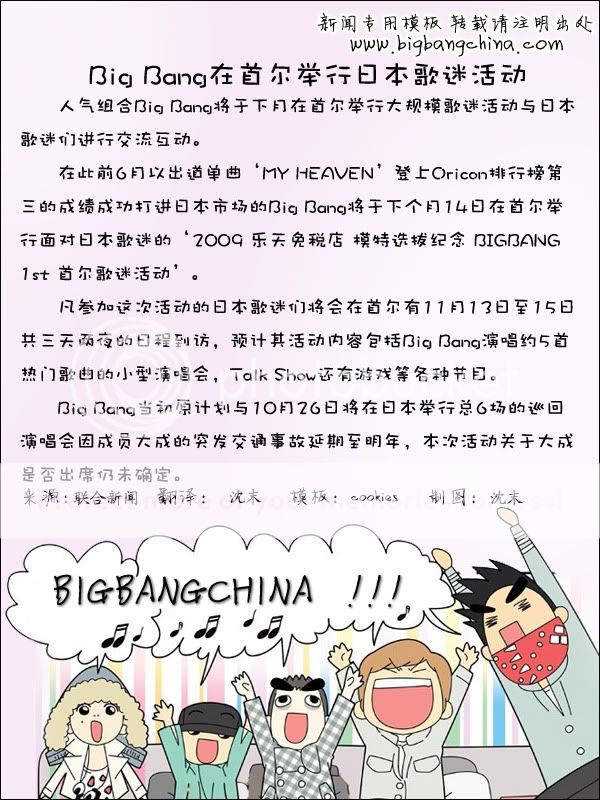 新闻专用模板 转载请注明出处
www.bigbangchina.com
Big Bang在首尔举行日本歌迷活动
人气组合Big Bang将于下月在首尔举行大规模歌迷活动与日本
歌迷们进行交流互动。
在此前6月以出道单曲‘MY HEAVEN’登上Oricon排行榜第
三的成绩成功打进日本市场的Big Bang将于下个月14日在首尔举
行面对日本歌迷的‘2009 乐天免税店 模特选拔纪念 BIGBANG
1st 首尔歌迷活动’。
凡参加这次活动的日本歌迷们将会在首尔有11月13日至15日
共三天两夜的日程到访，预计其活动内容包括Big Bang演唱约5首
热门歌曲的小型演唱会，Talk Show还有游戏等各种节目。
Big Bang当初原计划与10月26日将在日本举行总6场的巡回
演唱会因成员大成的突发交通事故延期至明年，本次活动关于大成
是否出席仍未确定。
来源：联合新闻 翻译： 沈末 模板： cookies 制图：沈末
BIGBANGCHINA !!!